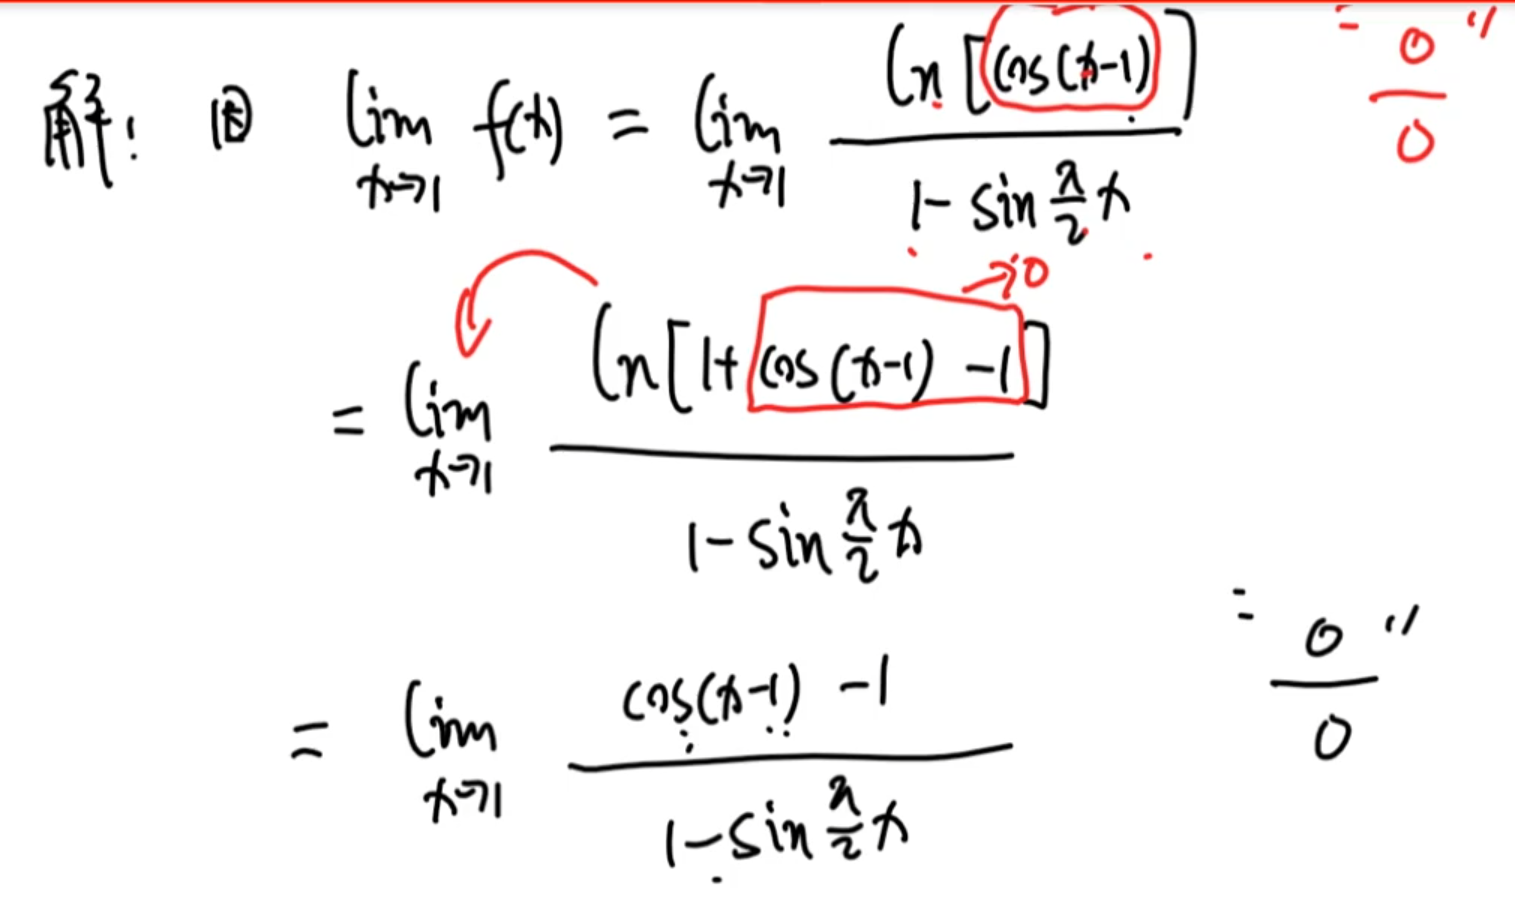 解: 因 lim_{x→1} f(x) = lim_{x→1} ln[cos(x-1)] / (1 - sin π/2 x) "0/0"
= lim_{x→1} ln[1+cos(x-1) -1] / (1 - sin π/2 x) →0
= lim_{x→1} (cos(x-1) -1) / (1 - sin π/2 x) "0/0"